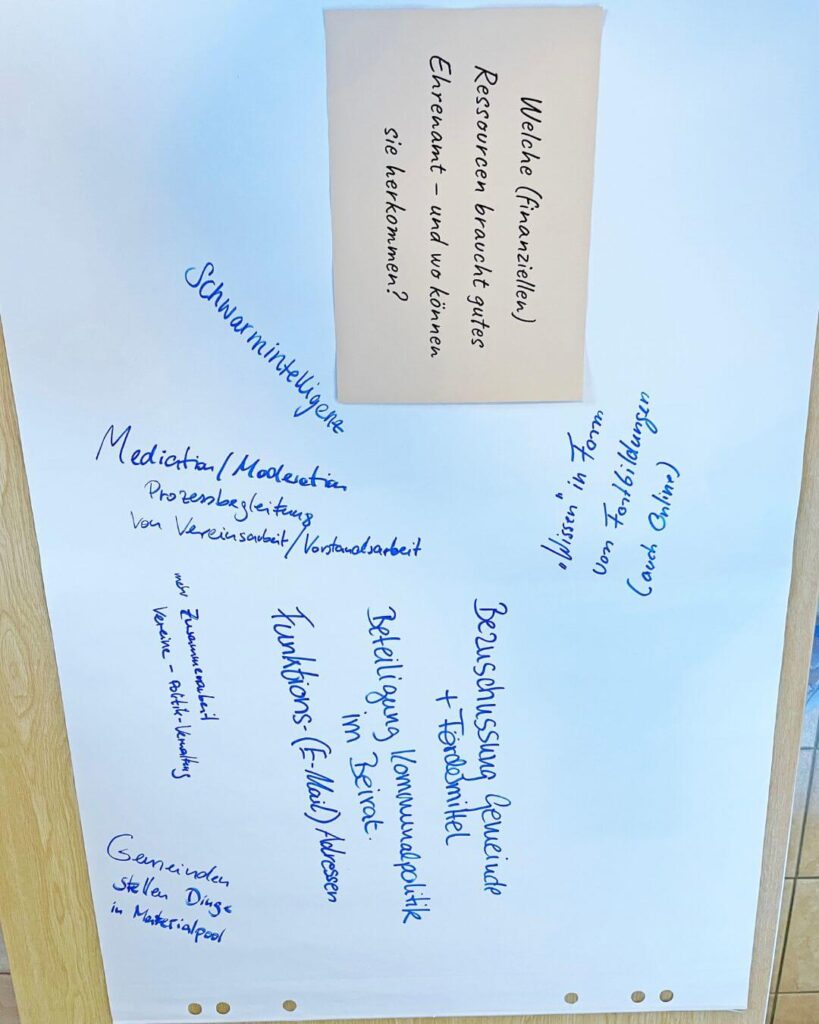 Welche (finanziellen)
Ressourcen braucht gutes
Ehrenamt – und wo können
sie herkommen?
"Wissen" in Form
von Fortbildungen
(auch Online)
Schwarmintelligenz
Mediation/Moderation
Prozessbegleitung
von Vereinsarbeit/Vorstandsarbeit
Bezuschussung Gemeinde
+ Fördermittel
Beteiligung Kommunalpolitik
im Beirat.
Funktions-(E-Mail) Adressen
mehr Zusammenarbeit
Vereine – Politik-Verwaltung
Gemeinden
stellen Dinge
in Materialpool